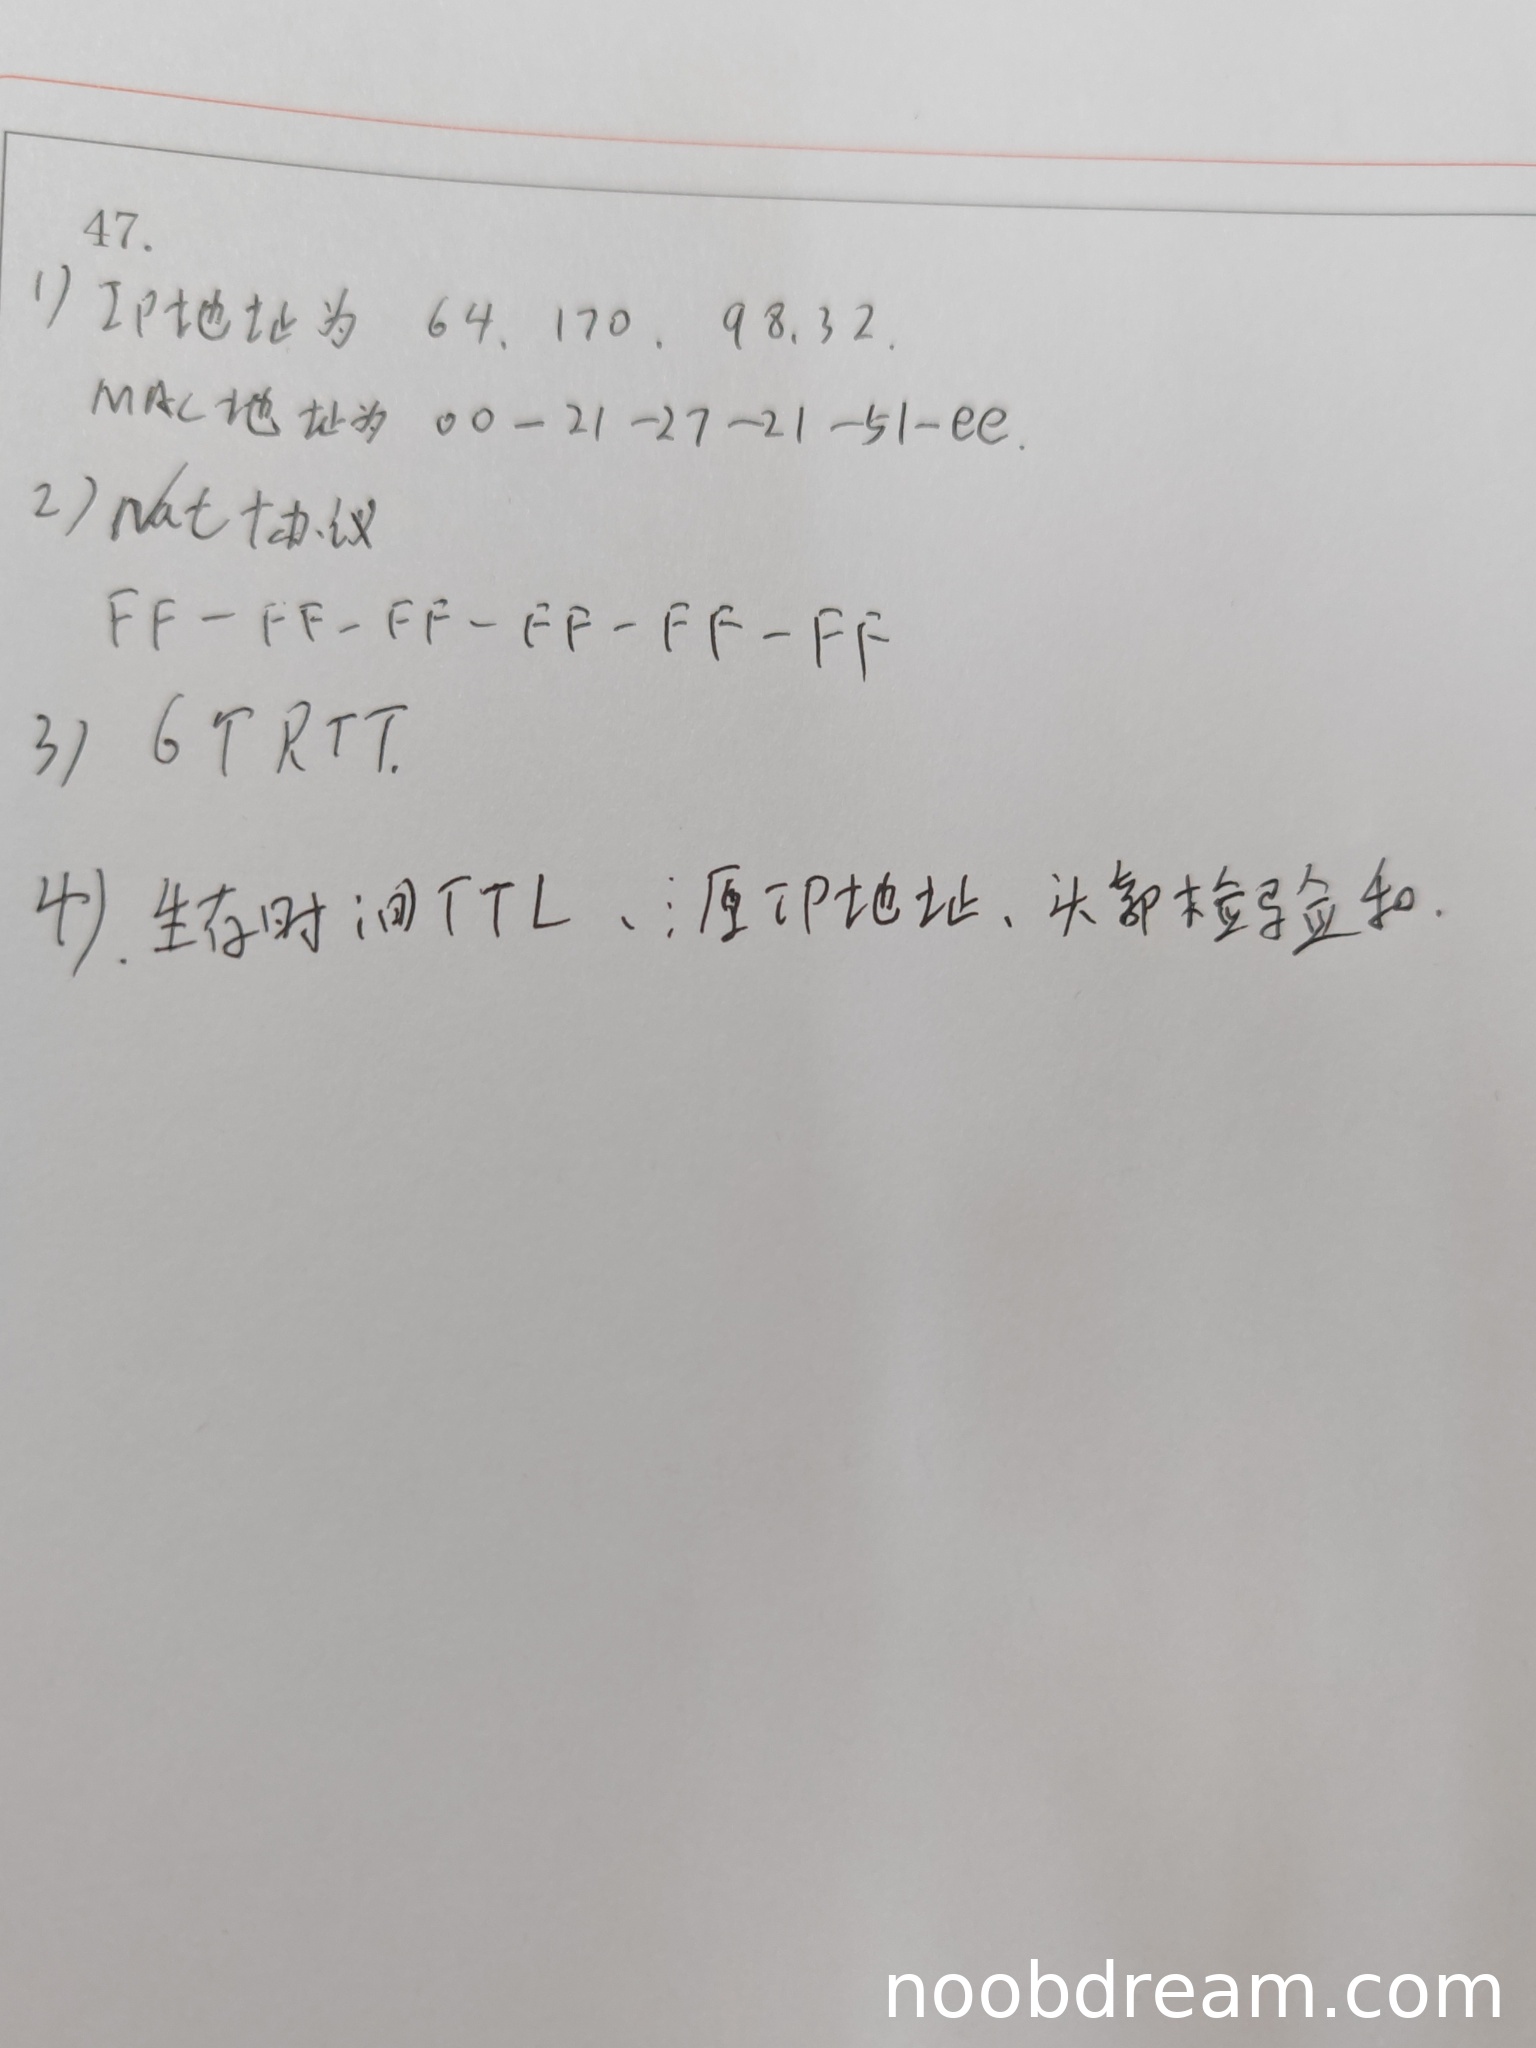 47.
1) IP地址为 64.170.98.32.
MAC地址为 00-21-27-21-51-ee.
2) Nat协议
FF-FF-FF-FF-FF-FF
3) 6个RTT.
4). 生存时间TTL、源IP地址、头部检验和.
noobdream.com